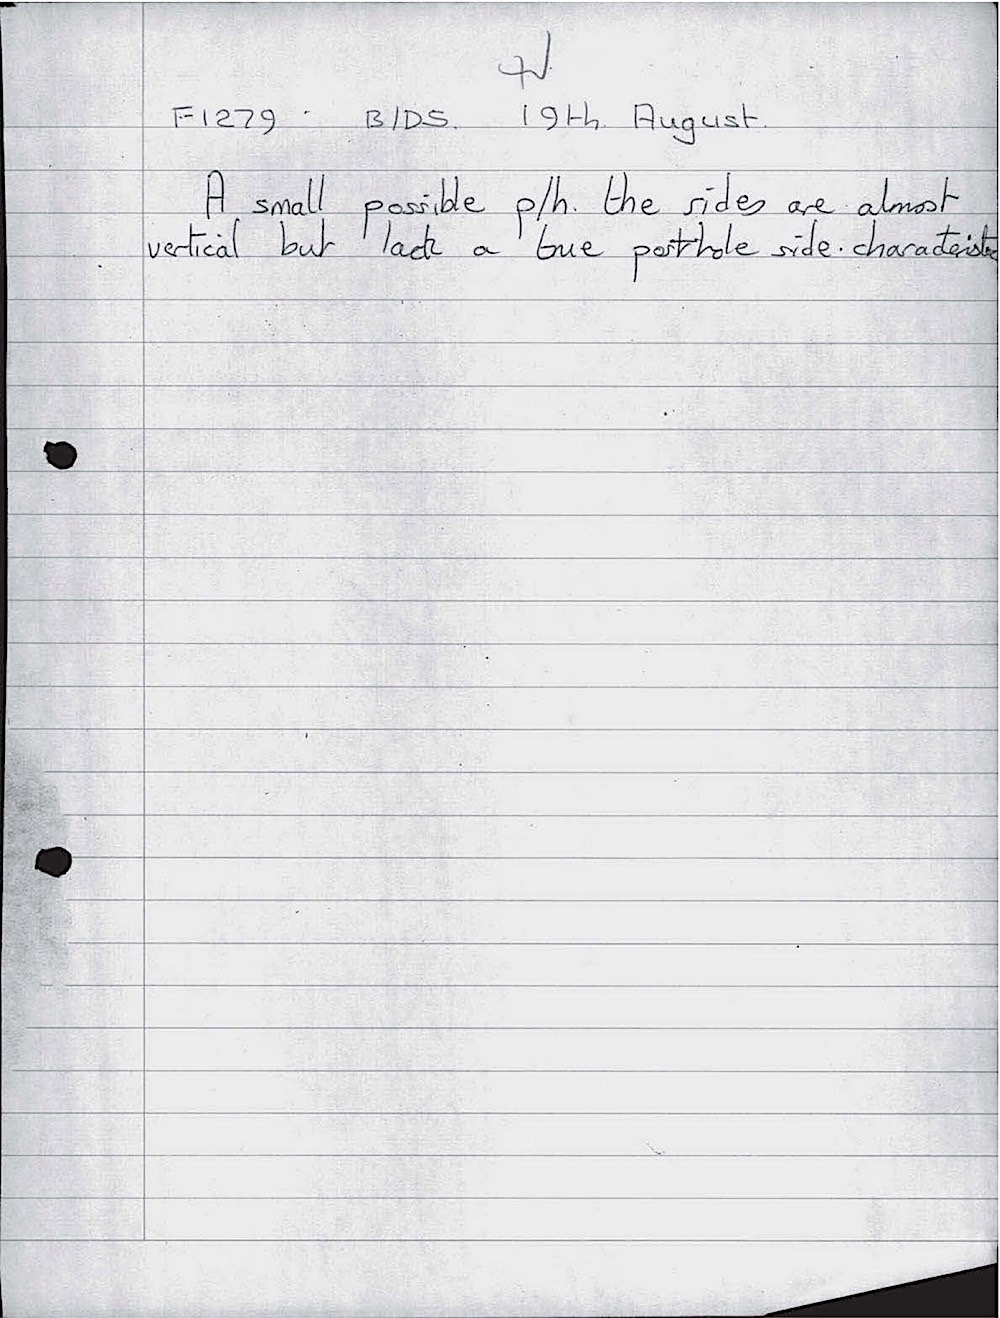 F1279. B/DS. 19th. August.
A small possible p/h. the sides are almost
vertical but lack a true posthole side. characteristic